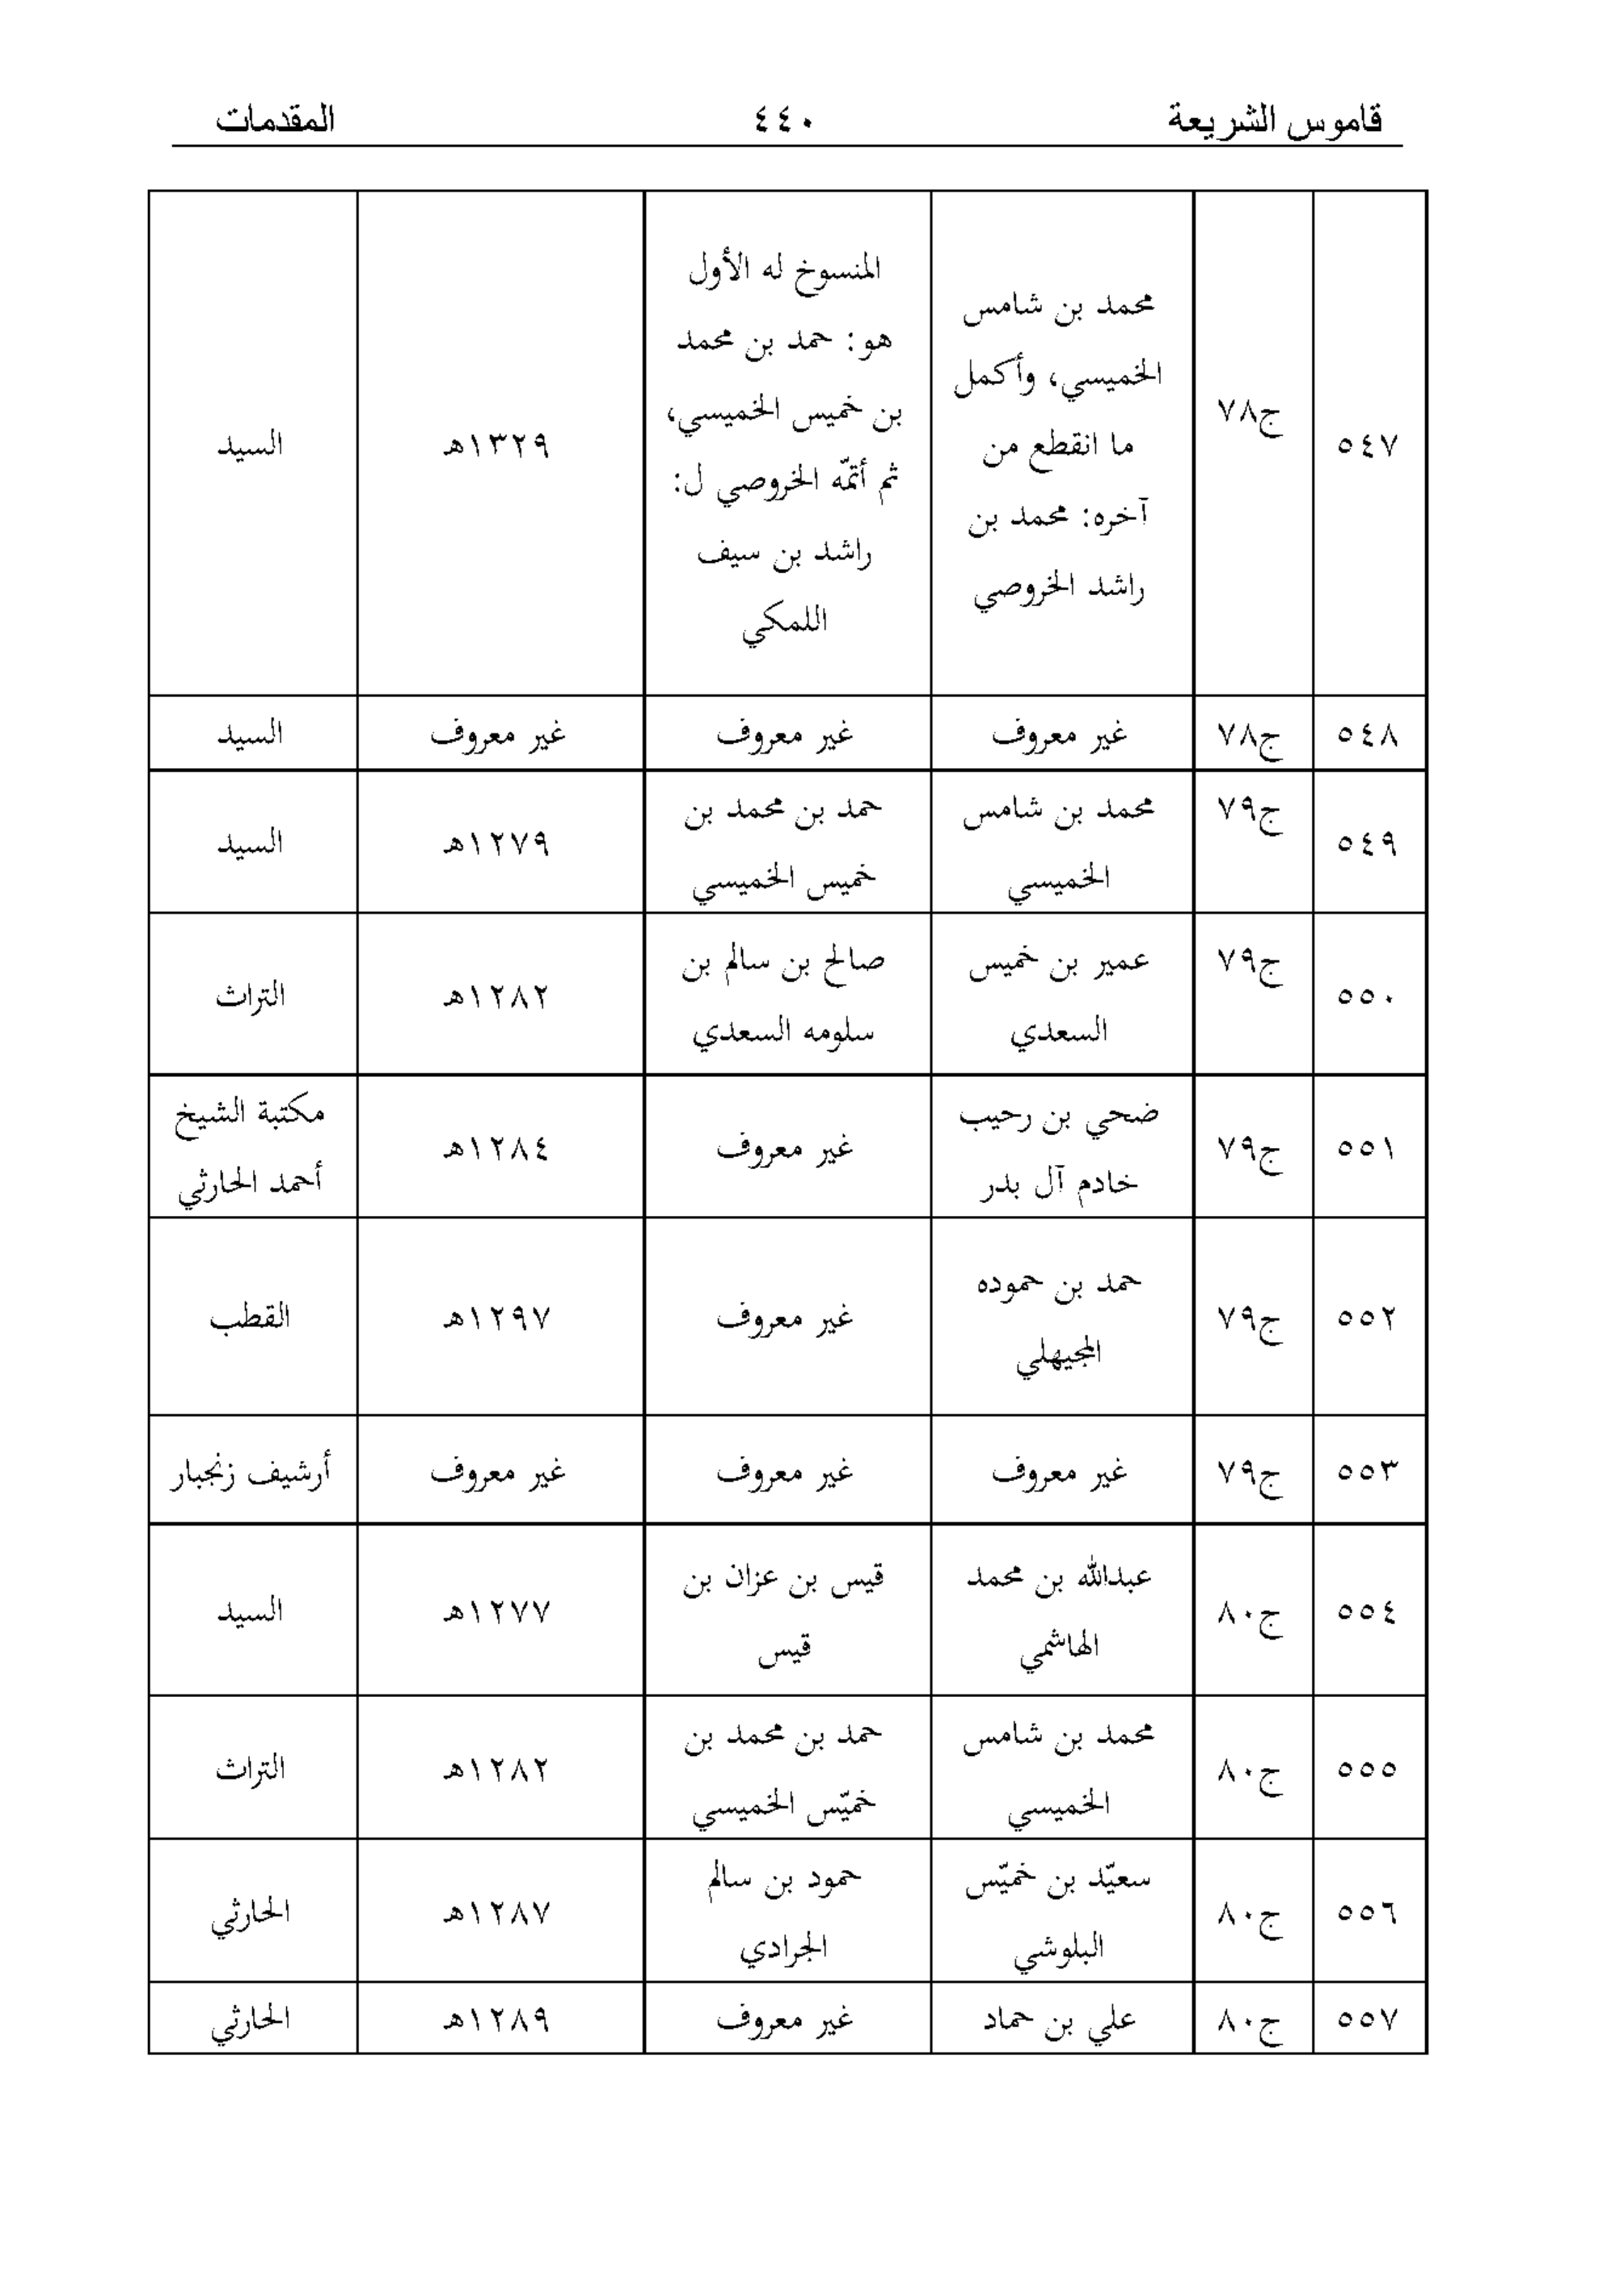 قاموس الشريعة ٤٤٠ المقدمات
٥٤٧
ج٧٨
محمد بن شامس
الخميسي، وأكمل
ما انقطع من
آخره: محمد بن
راشد الخروصي
المنسوخ له الأول
هو: حمد بن محمد
بن خميس الخميسي،
ثم أتمّه الخروصي ل:
راشد بن سيف
اللمكي
١٣٢٩هـ
السيد
٥٤٨
ج٧٨
غير معروف
غير معروف
غير معروف
السيد
٥٤٩
ج٧٩
محمد بن شامس
الخميسي
حمد بن محمد بن
خميس الخميسي
١٢٧٩هـ
السيد
٥٥٠
ج٧٩
عمير بن خميس
السعدي
صالح بن سالم بن
سلومه السعدي
١٢٨٢هـ
التراث
٥٥١
ج٧٩
ضحي بن رحيب
خادم آل بدر
غير معروف
١٢٨٤هـ
مكتبة الشيخ
أحمد الحارثي
٥٥٢
ج٧٩
حمد بن حموده
المجيهلي
غير معروف
١٢٩٧هـ
القطب
٥٥٣
ج٧٩
غير معروف
غير معروف
غير معروف
أرشيف زنجبار
٥٥٤
ج٨٠
عبدالله بن محمد
الهاشمي
قيس بن عزان بن
قيس
١٢٧٧هـ
السيد
٥٥٥
ج٨٠
محمد بن شامس
الخميسي
حمد بن محمد بن
خميّس الخميسي
١٢٨٢هـ
التراث
٥٥٦
ج٨٠
سعيّد بن خميّس
البلوشي
حمود بن سالم
الجرادي
١٢٨٧هـ
الحارثي
٥٥٧
ج٨٠
علي بن حماد
غير معروف
١٢٨٩هـ
الحارثي